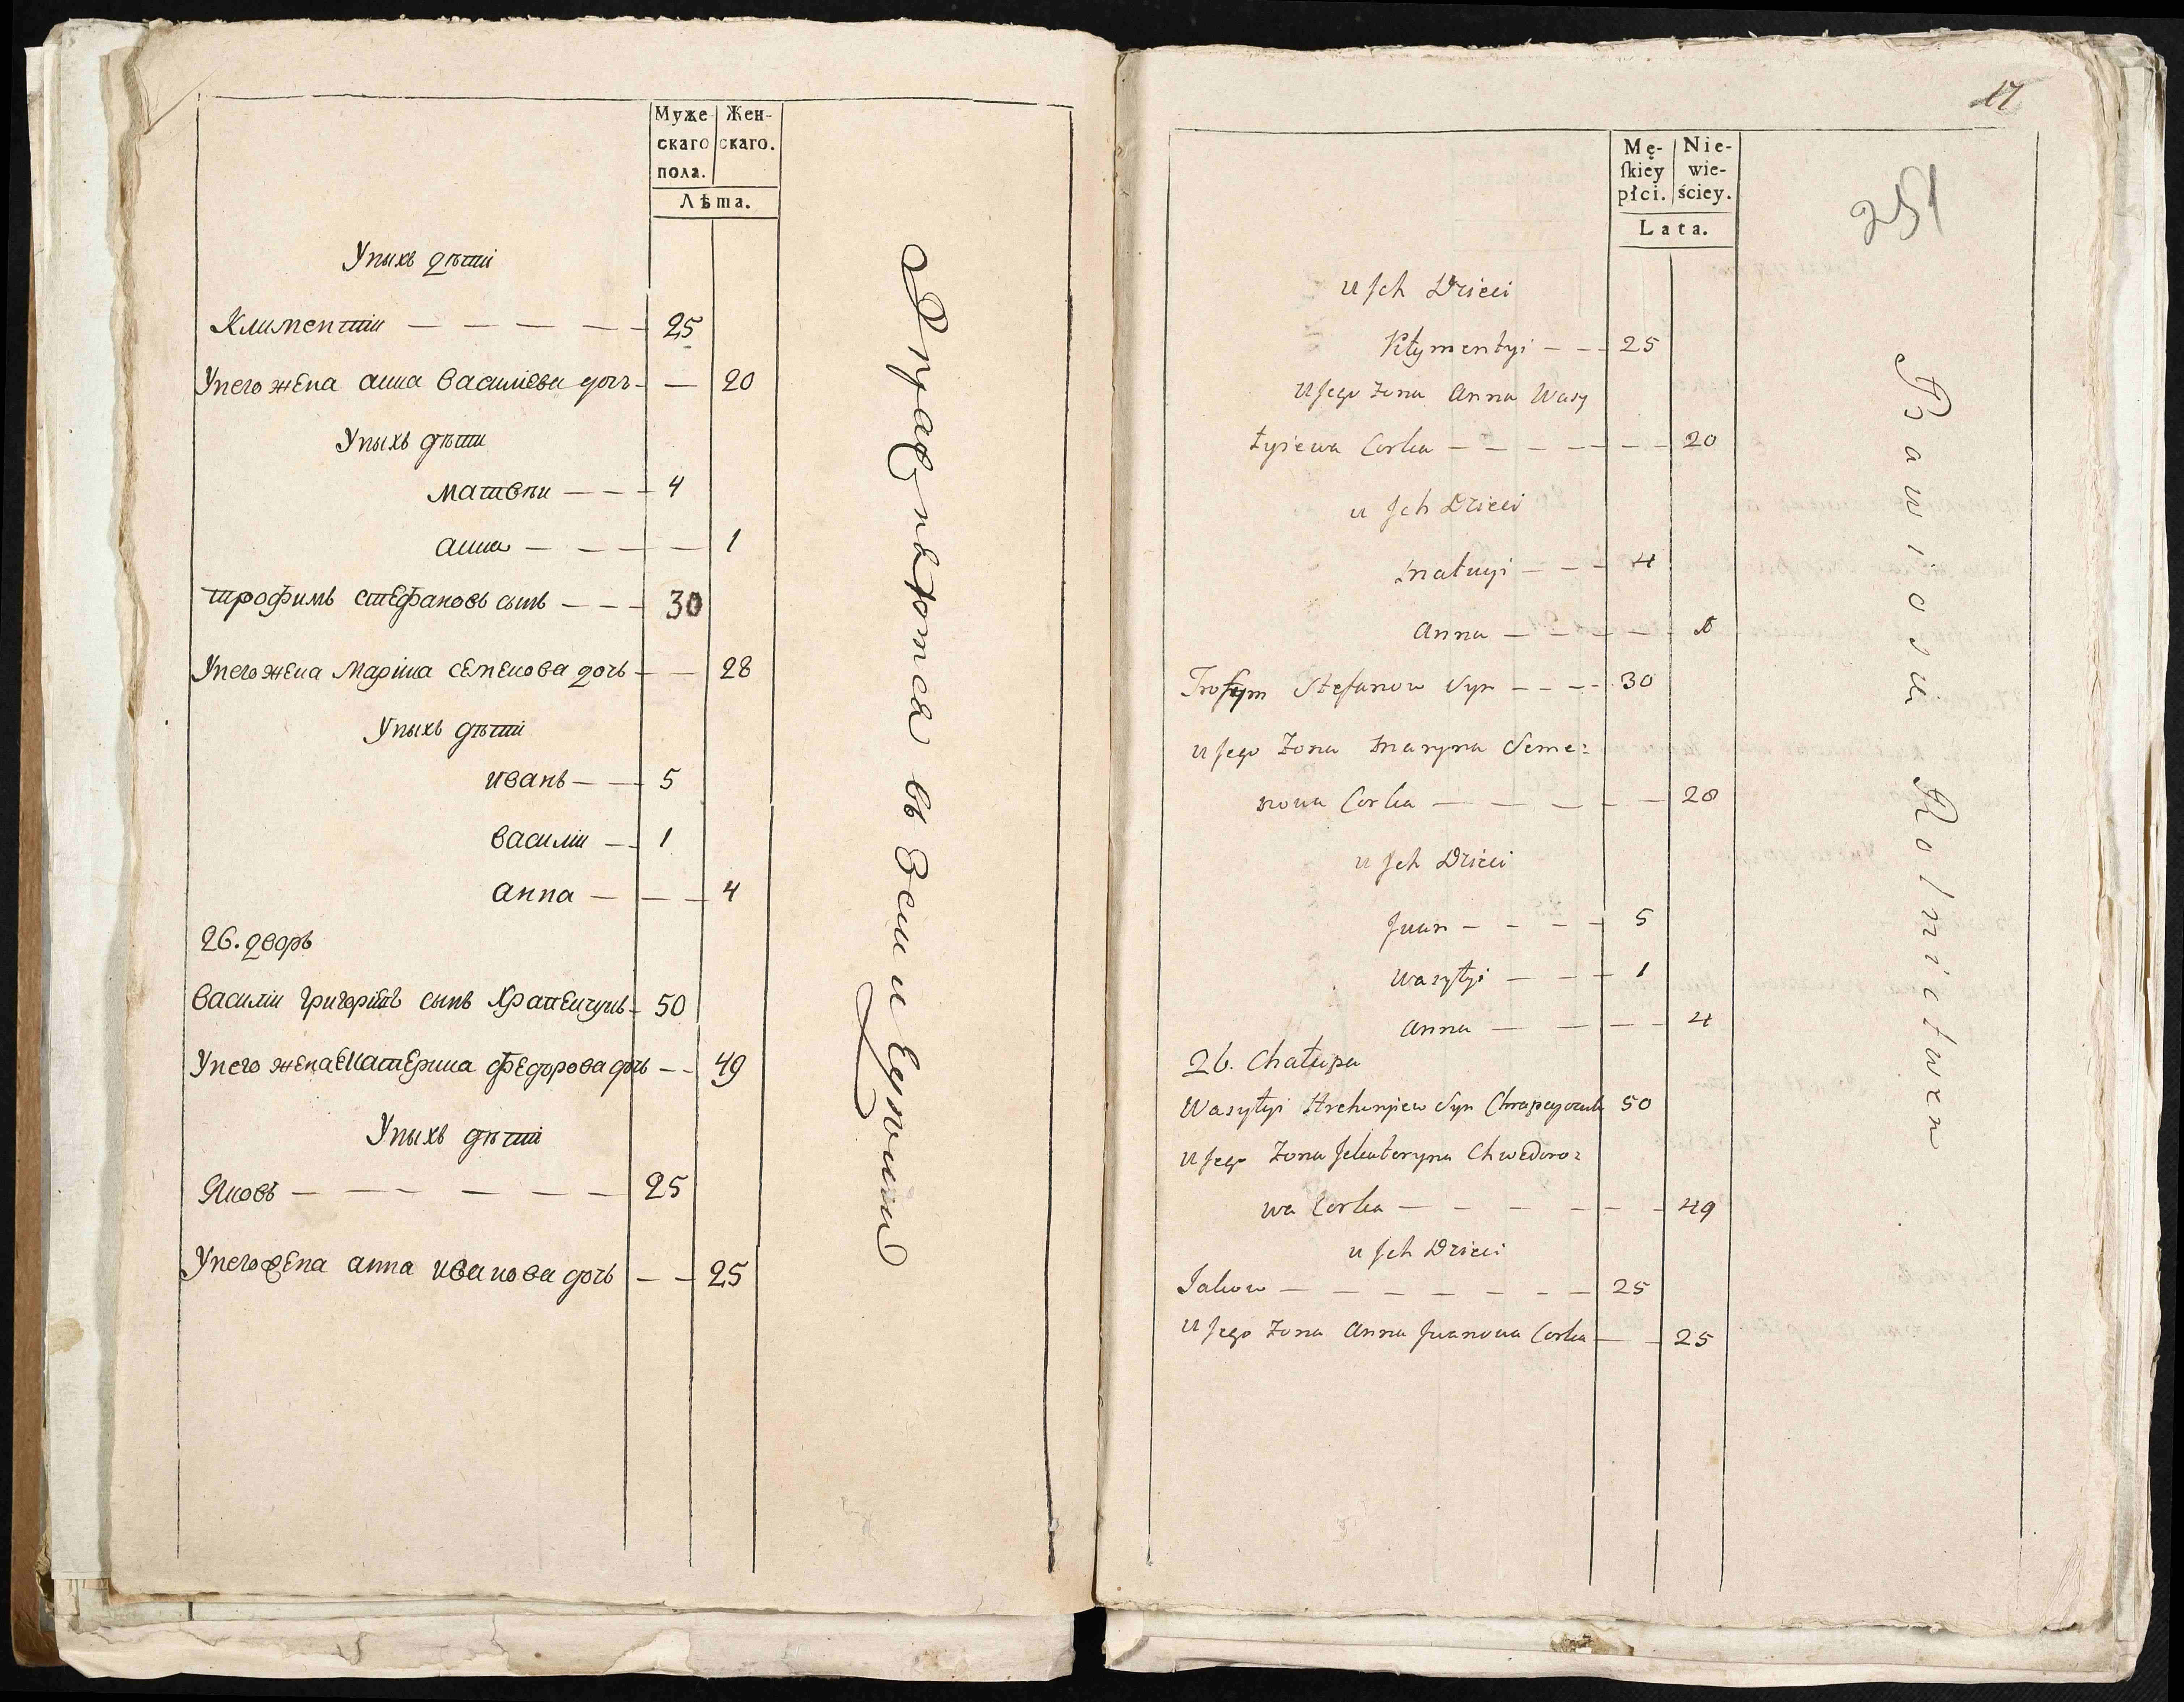 Муже-
скаго
пола.
Жен-
скаго.
Лѣта.
Уныхъ дѣти
Климентии — — — — — 25
Унего жена анна Василиева дочъ — — 20
Уныхъ дѣти
матвѣи — — — 4
анна — — — — 1
трофимъ стефановъ сынъ — — — 30
Унего жена Марина семенова дочъ — — 28
Уныхъ дѣти
иванъ — — 5
василии — 1
анна — — — 4
26. дворъ
Василии григориевъ сынъ 50
Унего жена Екатерина федорова дочъ — — 49
Уныхъ дѣти
Яковъ — — — — — — 25
Унего жена анна иванова дочъ — — 25
въ
17
251
Mę-
ſkiey
płci.
Nie-
wie-
ściey.
Lata.
u Jch Dzieci
Kłymentyi — — 25
u Jego Zona Anna Wasy
łyiewa Corka — — — — — — 20
u Jch Dzieci
Matwyi — — — 4
Anna — — — — — 1
Trofym Stefanow Syn — — — 30
u Jego Zona Maryna Seme:
nowa Corka — — — — — — 28
u Jch Dzieci
Jwan — — — — 5
Wasyłyi — — — 1
Anna — — — — 4
26. Chałupa
Wasyłyi Syn 50
u Jego Zona Jekateryna Chwedoro:
wa Corka — — — — — — — 49
u Jch Dzieci
Jakow — — — — — — — — 25
u Jego Zona Anna Jwanowa Corka — — 25
Bawiosię Rolnictwem